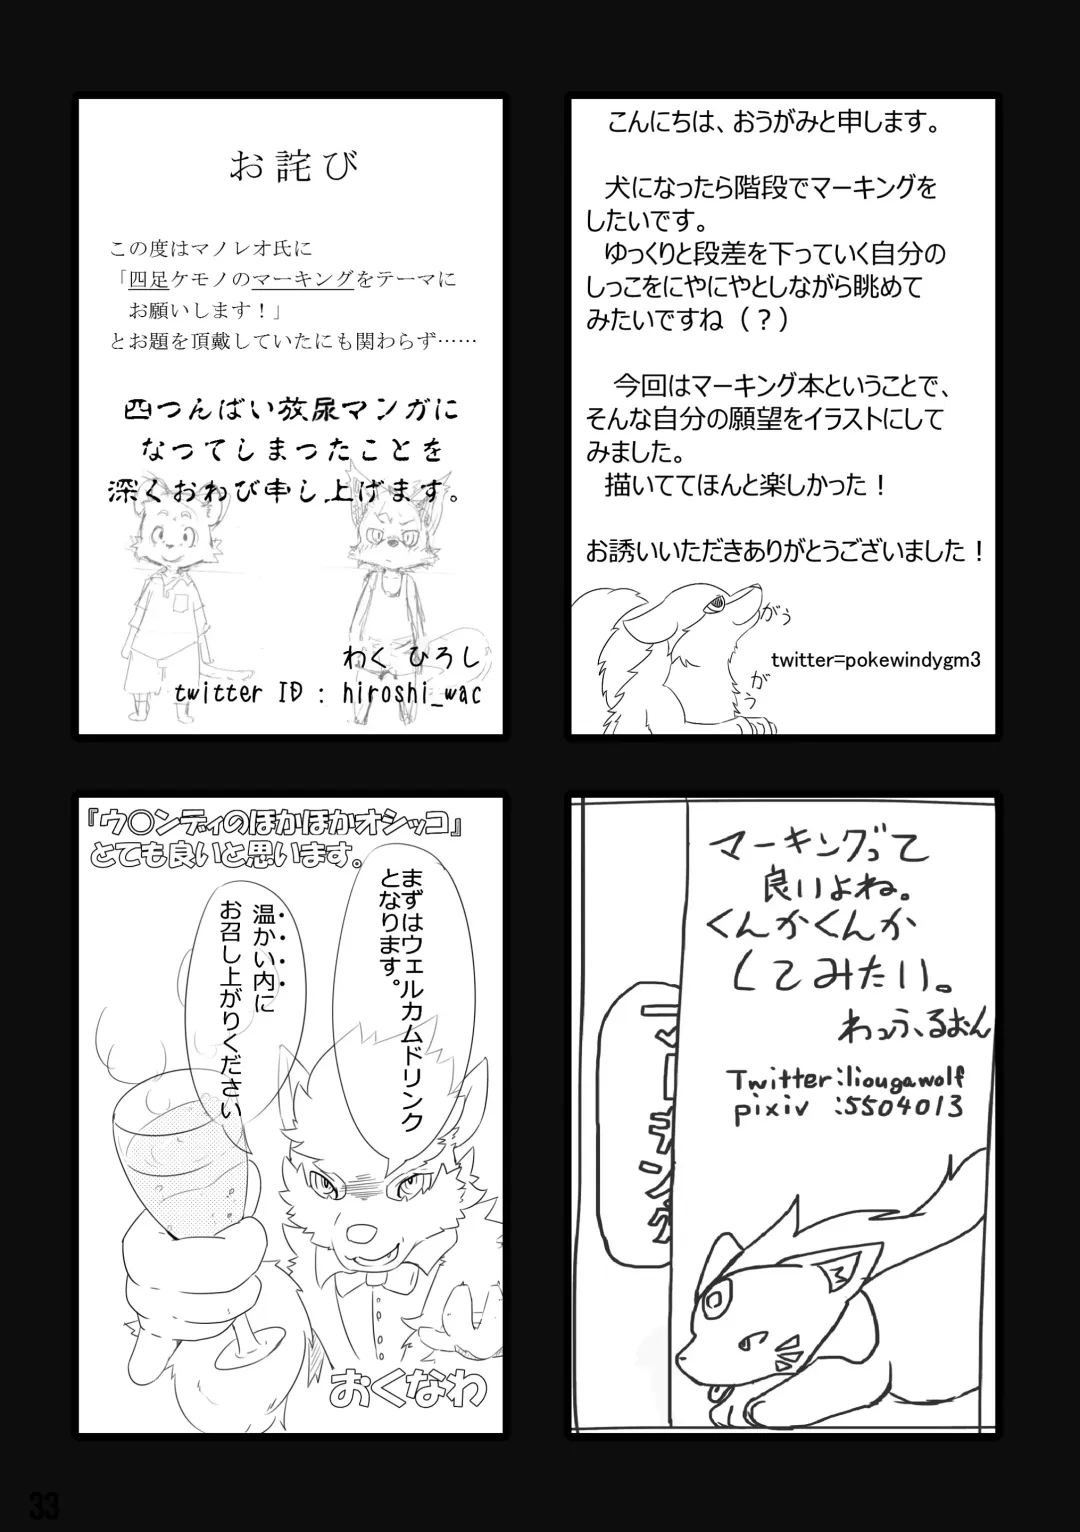 お詫び
この度はマノレオ氏に
「四足ケモノのマーキングをテーマに
お願いします！」
とお題を頂戴していたにも関わらず……
四つんばい放尿マンガに
なってしまったことを
深くおわび申し上げます。
わく ひろし
twitter ID : hiroshi_wac
こんにちは、おうがみと申します。
犬になったら階段でマーキングを
したいです。
ゆっくりと段差を下っていく自分の
しっこをにやにやとしながら眺めて
みたいですね（？）
今回はマーキング本ということで、
そんな自分の願望をイラストにして
みました。
描いててほんと楽しかった！
お誘いいただきありがとうございました！
がぅ
がぅ
twitter=pokewindygm3
『ウ○ンディのほかほかオシッコ』
とても良いと思います。
まずはウェルカムドリンク
となります。
温かい内に
お召し上がりください
おくなわ
マーキングって
良いよね。
くんかくんか
してみたい。
わっふるおん
Twitter:liougawolf
pixiv :5504013
マーキング
33